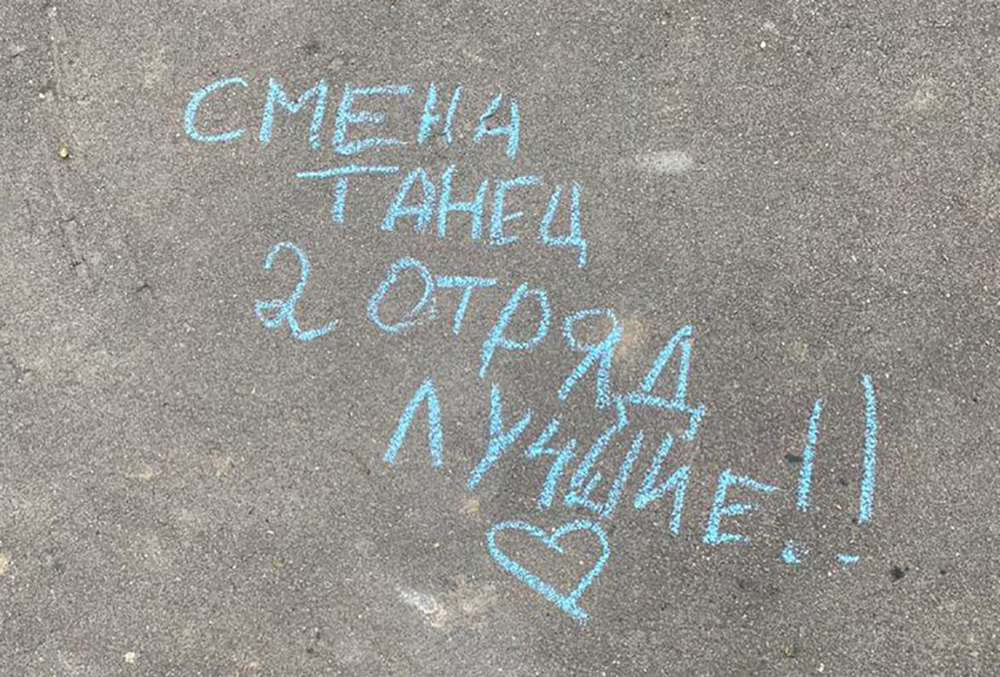 СМЕНА
ТАНЕЦ
2 ОТРЯД
ЛУЧШИЕ!!